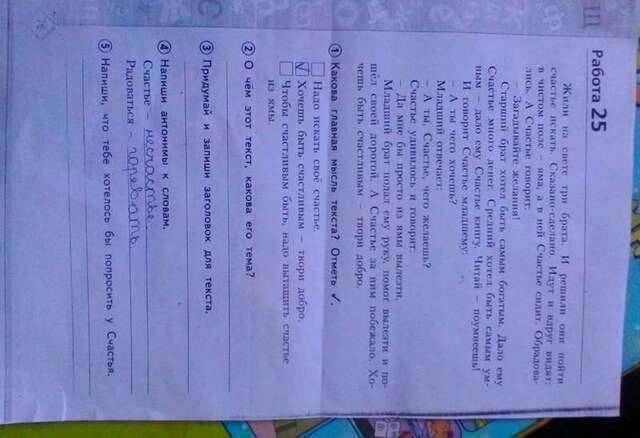 Работа 25
Жили на свете три брата. И решили они пойти
счастье искать. Сказано-сделано. Идут и вдруг видят:
в чистом поле – яма, а в ней Счастье сидит. Обрадова-
лись. А Счастье говорит:
– Загадывайте желания!
Старший брат хотел быть самым богатым. Дало ему
Счастье много денег. Средний хотел быть самым ум-
ным – дало ему Счастье книгу. Читай – поумнеешь!
И говорит Счастье младшему:
– А ты чего хочешь?
Младший отвечает:
– А ты, Счастье, чего желаешь?
Счастье удивилось и говорит:
– Да мне бы просто из ямы вылезти.
Младший брат подал ему руку, помог вылезти и по-
шёл своей дорогой. А Счастье за ним побежало. Хо-
чешь быть счастливым – твори добро.
1 Какова главная мысль текста? Отметь ✓.
Надо искать своё счастье.
✓ Хочешь быть счастливым – твори добро.
Чтобы счастливым быть, надо вытащить счастье
из ямы.
2 О чём этот текст, какова его тема?
3 Придумай и запиши заголовок для текста.
4 Напиши антонимы к словам.
Счастье – несчастье.
Радоваться – горевать
5 Напиши, что тебе хотелось бы попросить у Счастья.